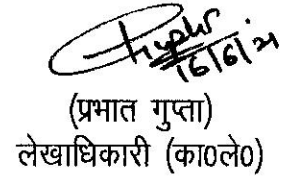 16/6/21
(प्रभात गुप्ता)
लेखाधिकारी (का0ले0)